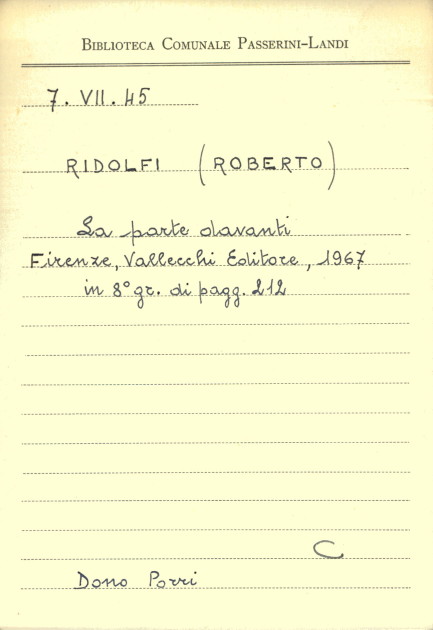 BIBLIOTECA COMUNALE PASSERINI-LANDI
7. VII. 45
RIDOLFI (ROBERTO)
La parte davanti
Firenze, Vallecchi Editore, 1967
in 8° gr. di pagg. 212
C
Dono Porri